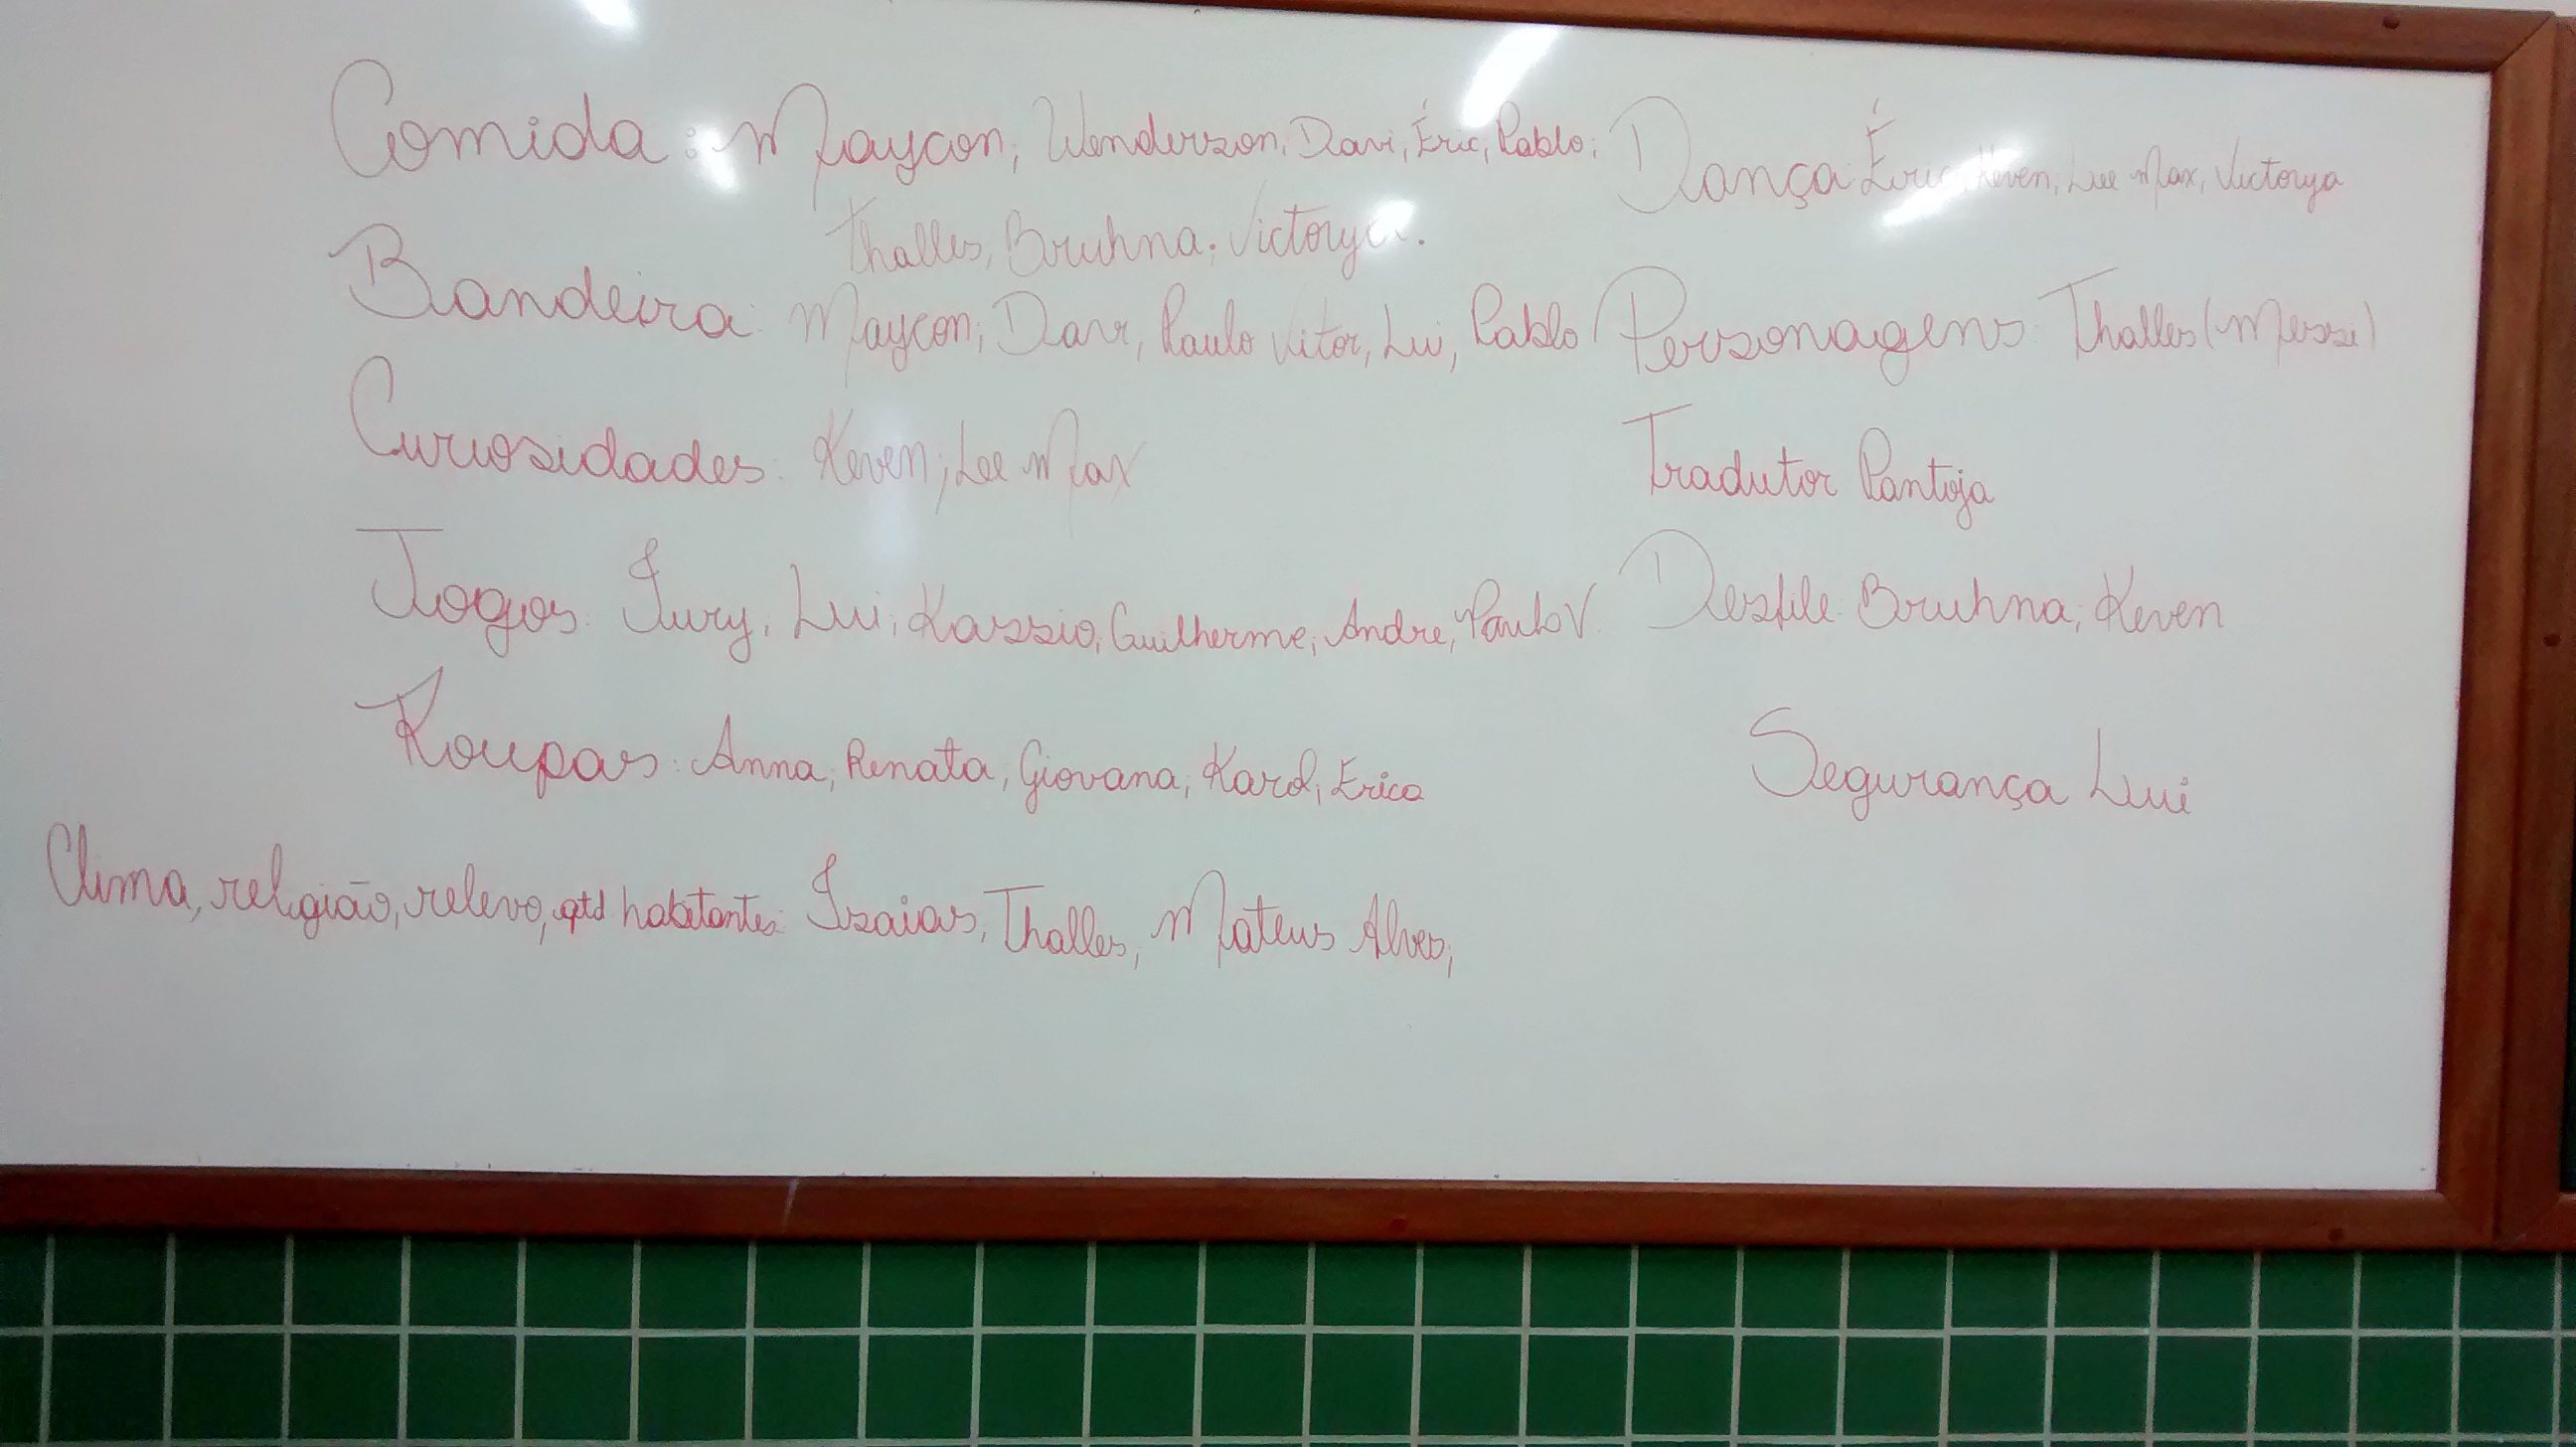 Comida: Maycon; Wenderson, Davi, Éric, Pablo;
Thalles, Bruhna; Victorya.
Bandeira: Maycon; Davi, Paulo Vitor, Lui, Pablo
Curiosidades: Keven; Lee Max
Jogos: Iury, Lui; Kassio; Guilherme; Andre, Paulo V.
Roupas: Anna; Renata, Giovana; Karol; Erica
Clima, religião, relevo, qtd habitantes: Isaias, Thalles, Mateus Alves;
Dança: Éric, Keven; Lee Max, Victorya
Personagens: Thalles (Messi)
Tradutor Pantoja
Desfile: Bruhna; Keven
Segurança Lui